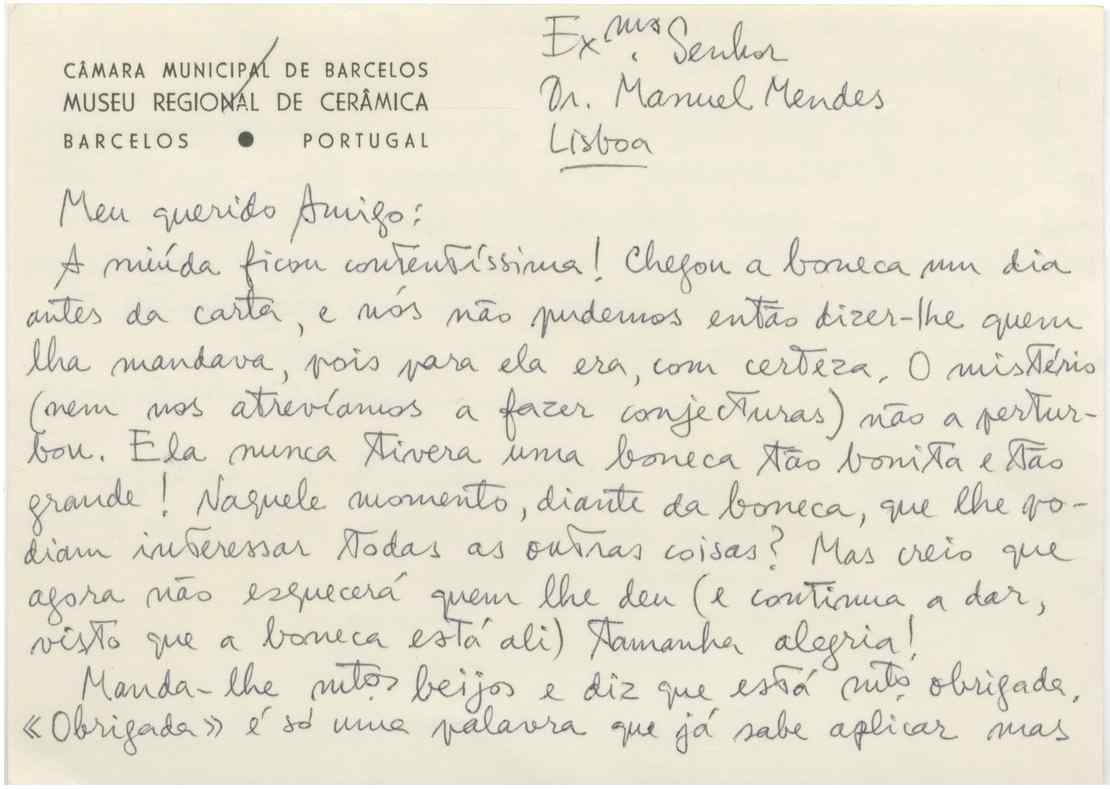 CÂMARA MUNICIPAL DE BARCELOS
MUSEU REGIONAL DE CERÂMICA
BARCELOS ● PORTUGAL
Ex.mo Senhor
Dr. Manuel Mendes
Lisboa
Meu querido Amigo:
A miúda ficou contentíssima! Chegou a boneca um dia
antes da carta, e nós não pudemos então dizer-lhe quem
lha mandava, pois para ela era, com certeza. O mistério
(nem nos atrevíamos a fazer conjecturas) não a pertur-
bou. Ela nunca tivera uma boneca tão bonita e tão
grande! Naquele momento, diante da boneca, que lhe po-
diam interessar todas as outras coisas? Mas creio que
agora não esquecerá quem lhe deu (e continua a dar,
visto que a boneca está ali) tamanha alegria!
Manda-lhe mtos beijos e diz que está mto obrigada.
«Obrigada» é só uma palavra que já sabe aplicar mas